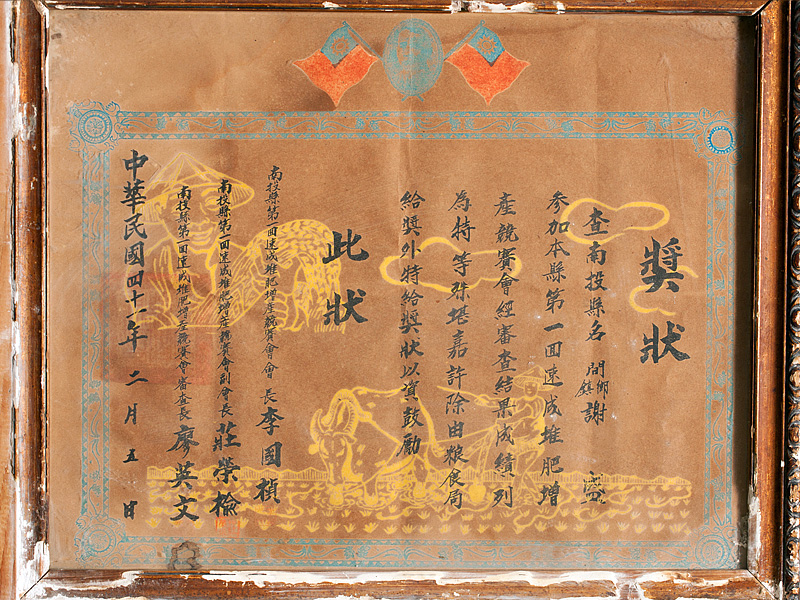 獎狀
查南投縣名間鄉鎮謝 盛
參加本縣第一回速成堆肥增
產競賽會經審查結果成績列
為特等殊堪嘉許除由粮食局
給獎外特給獎狀以資鼓勵
此狀
南投縣第一回速成堆肥增產競賽會會長 李國楨
南投縣第一回速成堆肥增產競賽會副會長 莊榮檢
南投縣第一回速成堆肥增產競賽會審查長 廖英文
中華民國四十一年二月五日